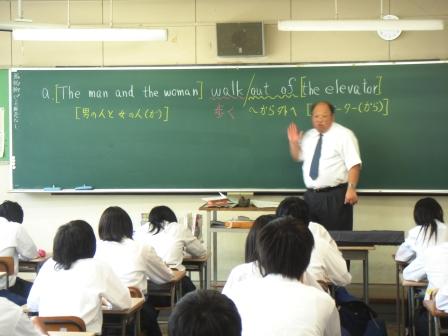 a. [The man and the woman] walk/out of [the elevator]
[男の人と女の人(が)] 歩く 〜から外へ [ ーター(から)]